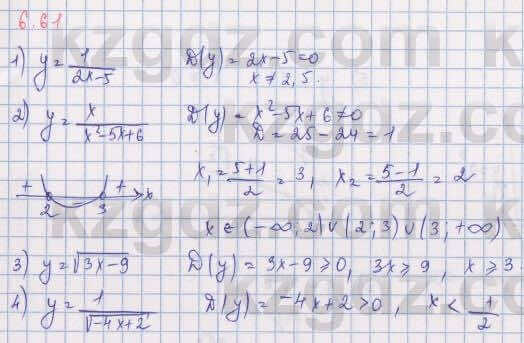 6.61
1) y = 1/(2x-5) D(y) = 2x-5=0
x ≠ 2,5.
2) y = x/(x²-5x+6) D(y) = x²-5x+6≠0
D = 25-24=1
x₁ = (5+1)/2 = 3, x₂ = (5-1)/2 = 2
+ + x
2 3
x ∈ (-∞; 2) ∪ (2; 3) ∪ (3; +∞)
3) y = √(3x-9) D(y) = 3x-9 ≥ 0, 3x ≥ 9, x ≥ 3
4) y = 1/√(-4x+2) D(y) = -4x+2 > 0, x < 1/2
kzgoz.com kzgoz.com